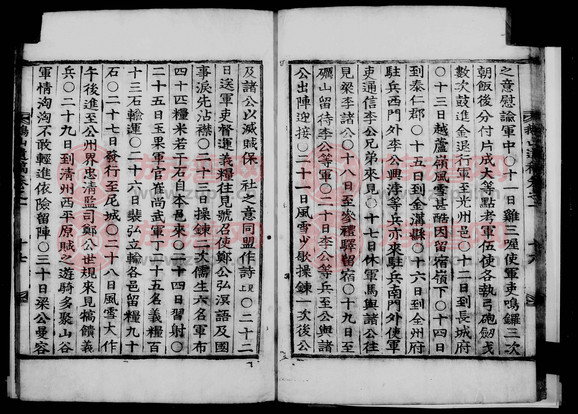 之意慰諭軍中○十一日雞三喔使軍吏鳴鑼三次
朝飯後分付片成大等點考軍伍使各執弓砲劒戈
數次鼓進金退行軍至光州邑○十二日到長城府
○十三日越蘆嶺風雪甚酷因留宿嶺下○十四日
到泰仁郡○十五日到金溝縣○十六日到全州府
駐兵西門外李公浡等兵亦來駐兵南門外使軍
吏通信李公兄弟來見○十七日休軍馬與諸公往
見梁李諸公○十八日至參禮驛留宿○十九日至
礪山留待李公等軍○二十日李公等兵至公與諸
公出陣迎接○二十一日風雪少歇操鍊一次後公
及諸公以滅賊保 社之意同盟作詩 見上 ○二十二
日送軍吏督運義糧往見號召使鄭公弘溟語及國
事淚先沾襟○二十三日操鍊二次儒生六名軍布
四十匹糧米若干石自本邑來○二十四日習射○
二十五日玉果軍官崔尚武軍丁三十五名義糧百
十三石輸運○二十六日裴弘立輸各邑留糧九十
石○二十七日發行至尼城○二十八日風雪大作
午後進至公州界忠清監司鄭公世規來見犒饋義
兵○二十九日到清州西平原賊之遊騎多聚山谷
軍情洶洶不敢輕進依險留陣○三十日梁公曼容